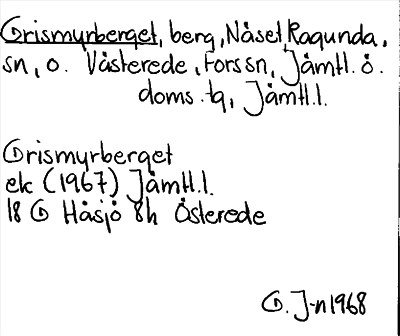 Grismyrberget, berg, Näset Ragunda,
sn, o. Västerede, Fors sn, Jämtl. ö.
doms. tg, Jämtl. l.
Grismyrberget
ek (1967) Jämtl. l.
18 G Håsjö 8h Österede
G. J-n 1968